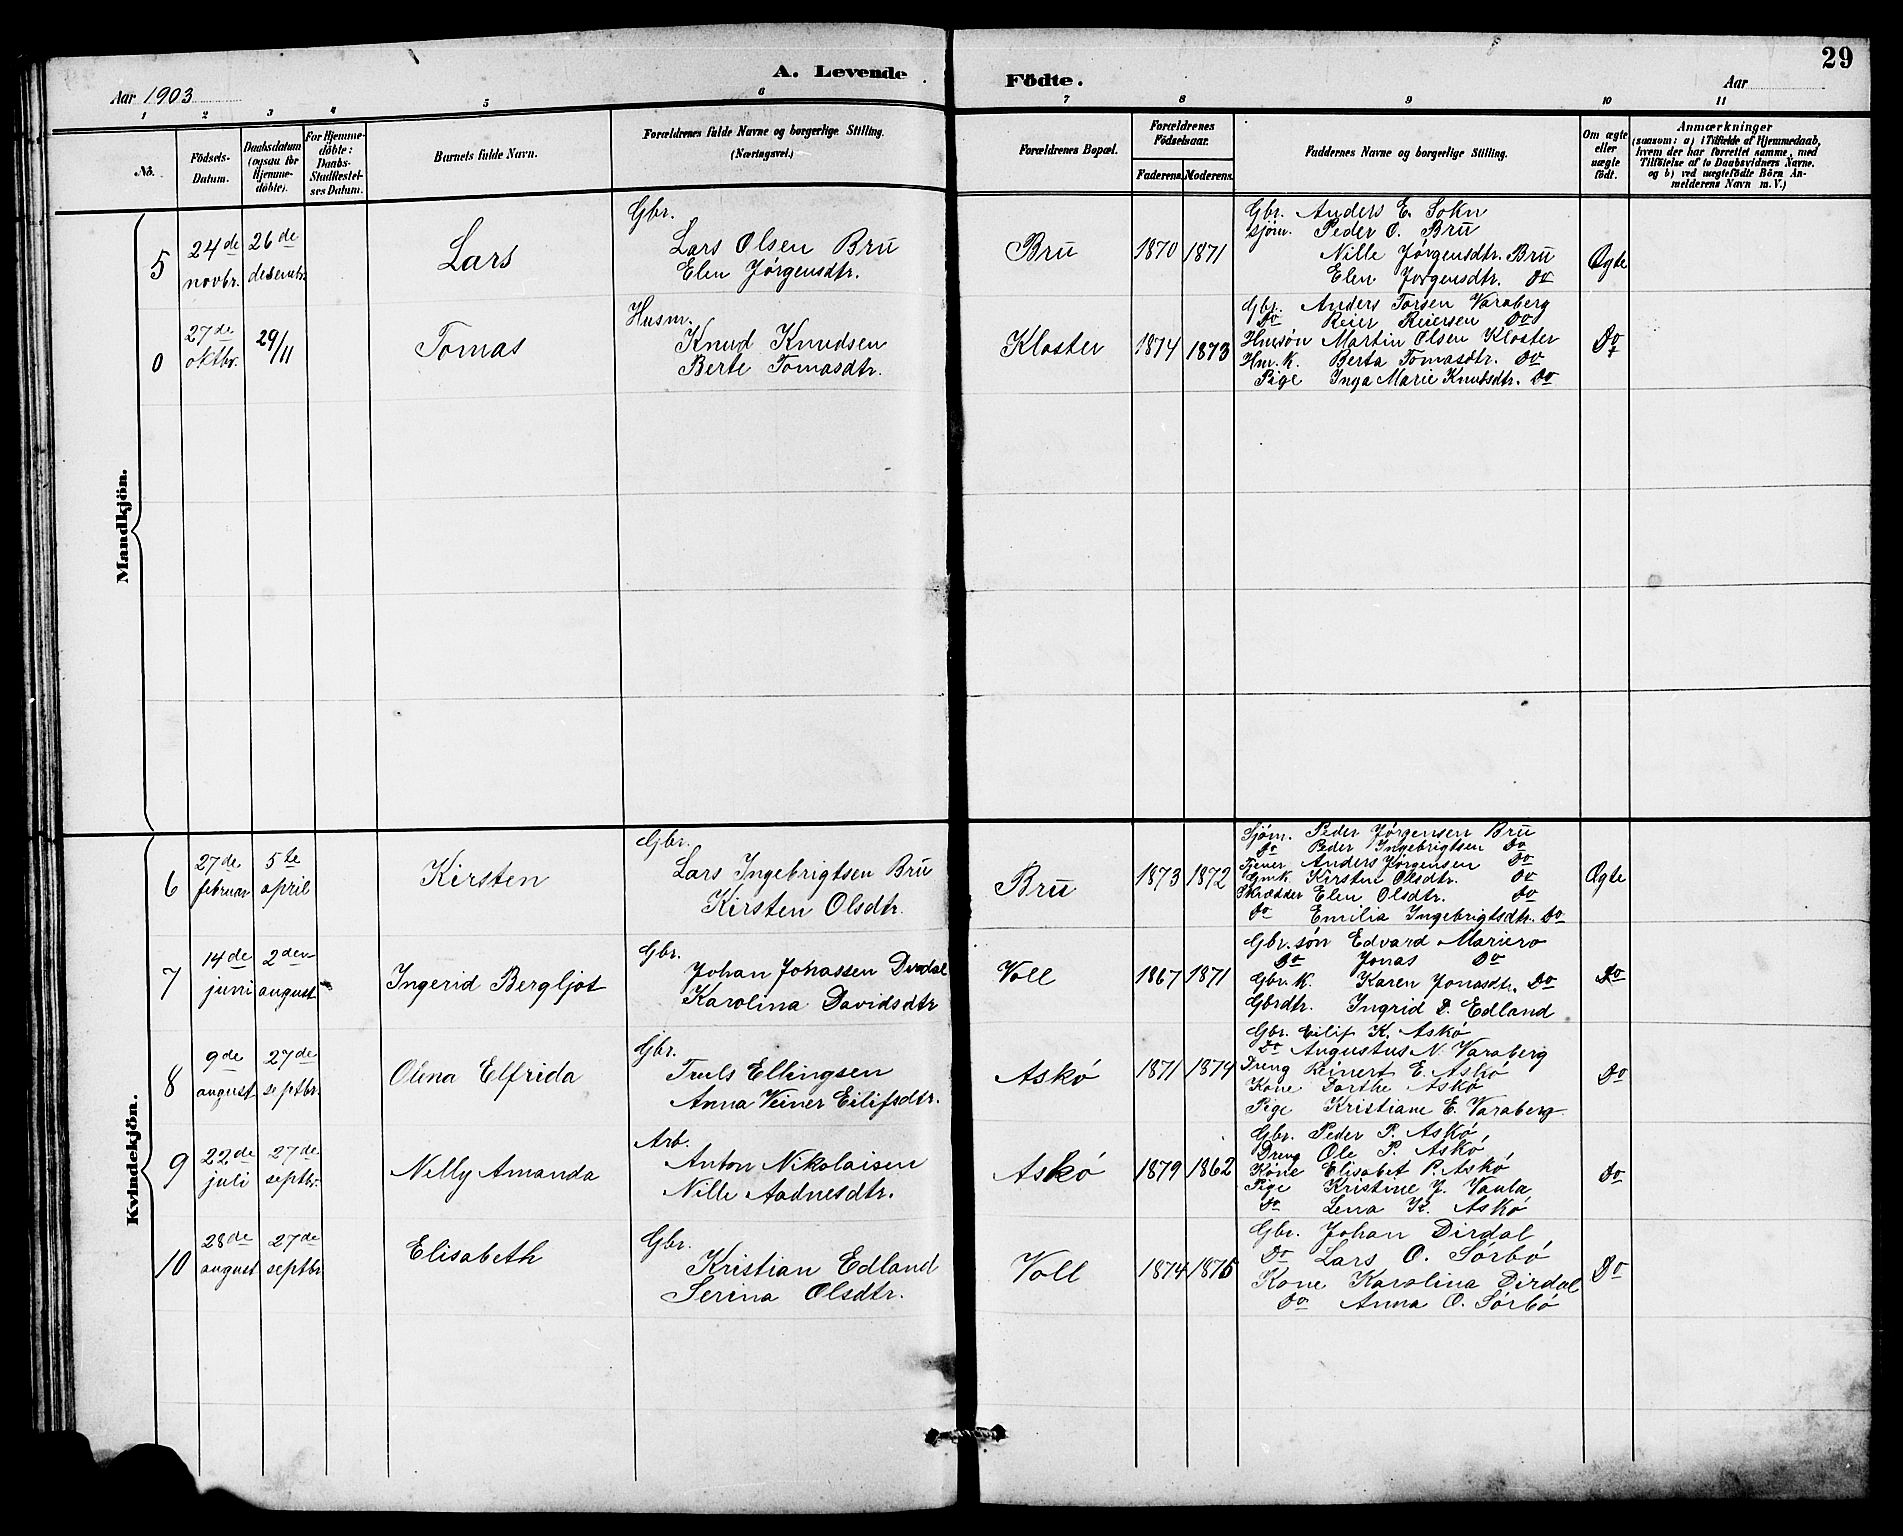 29
Aar 1903
A. Levende
Födte.
Aar
1 2 3 4 5 6 7 8 9 10 11
No.
Födsels-Datum.
Daabsdatum (ogsau för Hjemme-döbte).
For Hjemme-döbte: Daabs-Stadfestel-ses Datum.
Barnets fulde Navn.
Forældrenes fulde Navne og borgerlige Stilling.
(Næringsvei.)
Forældrenes Bopæl.
Forældrenes Födselsaar.
Faderens. Moderens.
Faddernes Navne og borgerlige Stilling.
Om ægte eller uægte födt.
Anmærkninger
(saasom: a) i Tilfælde af Hjemmedaab,
hvem der har forrettet samme, med
Tilföielse af to Daabsvidners Navne.
og b) ved uægtefödte Börn An-
melderens Navn m. V.)
Mandkjön.
5
24de novbr.
26de desembr.
Lars
Gbr.
Lars Olsen Bru
Elen Jørgensdtr.
Bru
1870 1871
Gbr. Anders E. Sokn
Sjöm. Peder O. Bru
Nille Jørgensdtr. Bru
Elen Jørgensdtr. Do
Ægte
0
27de oktbr.
29/11
Tomas
Husm.
Knud Knudsen
Berte Tomasdtr.
Kloster
1874 1873
Gbr. Anders Torsen Varaberg
Do Reier Reiersen Do
Hmsøn Martin Olsen Kloster
Hm. K. Berta Tomasdtr. Do
Pige Inga Marie Knutsdtr. Do
Do
Kvindekjön.
6
27de februar
5te april
Kirsten
Gbr.
Lars Ingebrigtsen Bru
Kirsten Olsdtr.
Bru
1873 1872
Sjöm. Peder Jørgensen Bru
Do Peder Ingebrigtsen Do
Tjener Anders Jørgensen Do
Gmk. Kirsten Olsdtr. Do
Skrædder Elen Olsdtr. Do
Do Emilia Ingebrigtsdtr. Do
Ægte
7
14de juni
2den august
Ingerid Bergljot
Gbr.
Johan Johassen Dirdal
Karolina Davidsdtr
Voll
1867 1871
Gbr. søn Edvard Mariero
Do Jonas Do
Gbr. K. Karen Jonasdtr. Do
Gbrdtr. Ingrid D. Edland
Do
8
9de august
27de septbr.
Olena Elfrida
Gbr.
Truls Ellingsen
Anna Veiner Eilifsdtr.
Askö
1871 1874
Gbr. Eilif K. Askö
Do Augustus N. Varaberg
Dreng Reinert E. Askö
Kone Dorthe Askö
Pige Kristiane E. Varaberg
Do
9
22de juli
27de septbr.
Nelly Amanda
Arb.
Anton Nikolaisen
Nille Aadnesdtr.
Askö
1879 1862
Gbr. Peder P. Askö
Dreng Ole P. Askö
Kone Elisabet P. Askö
Pige Kristine J. Vaula
Do Lena K. Askö
Do
10
28de august
27de septbr
Elisabeth
Gbr.
Kristian Edland
Serina Olsdtr.
Voll
1874 1875
Gbr. Johan Dirdal
Do Lars O. Sørbö
Kone Karolina Dirdal
Do Anna O. Sørbö
Do